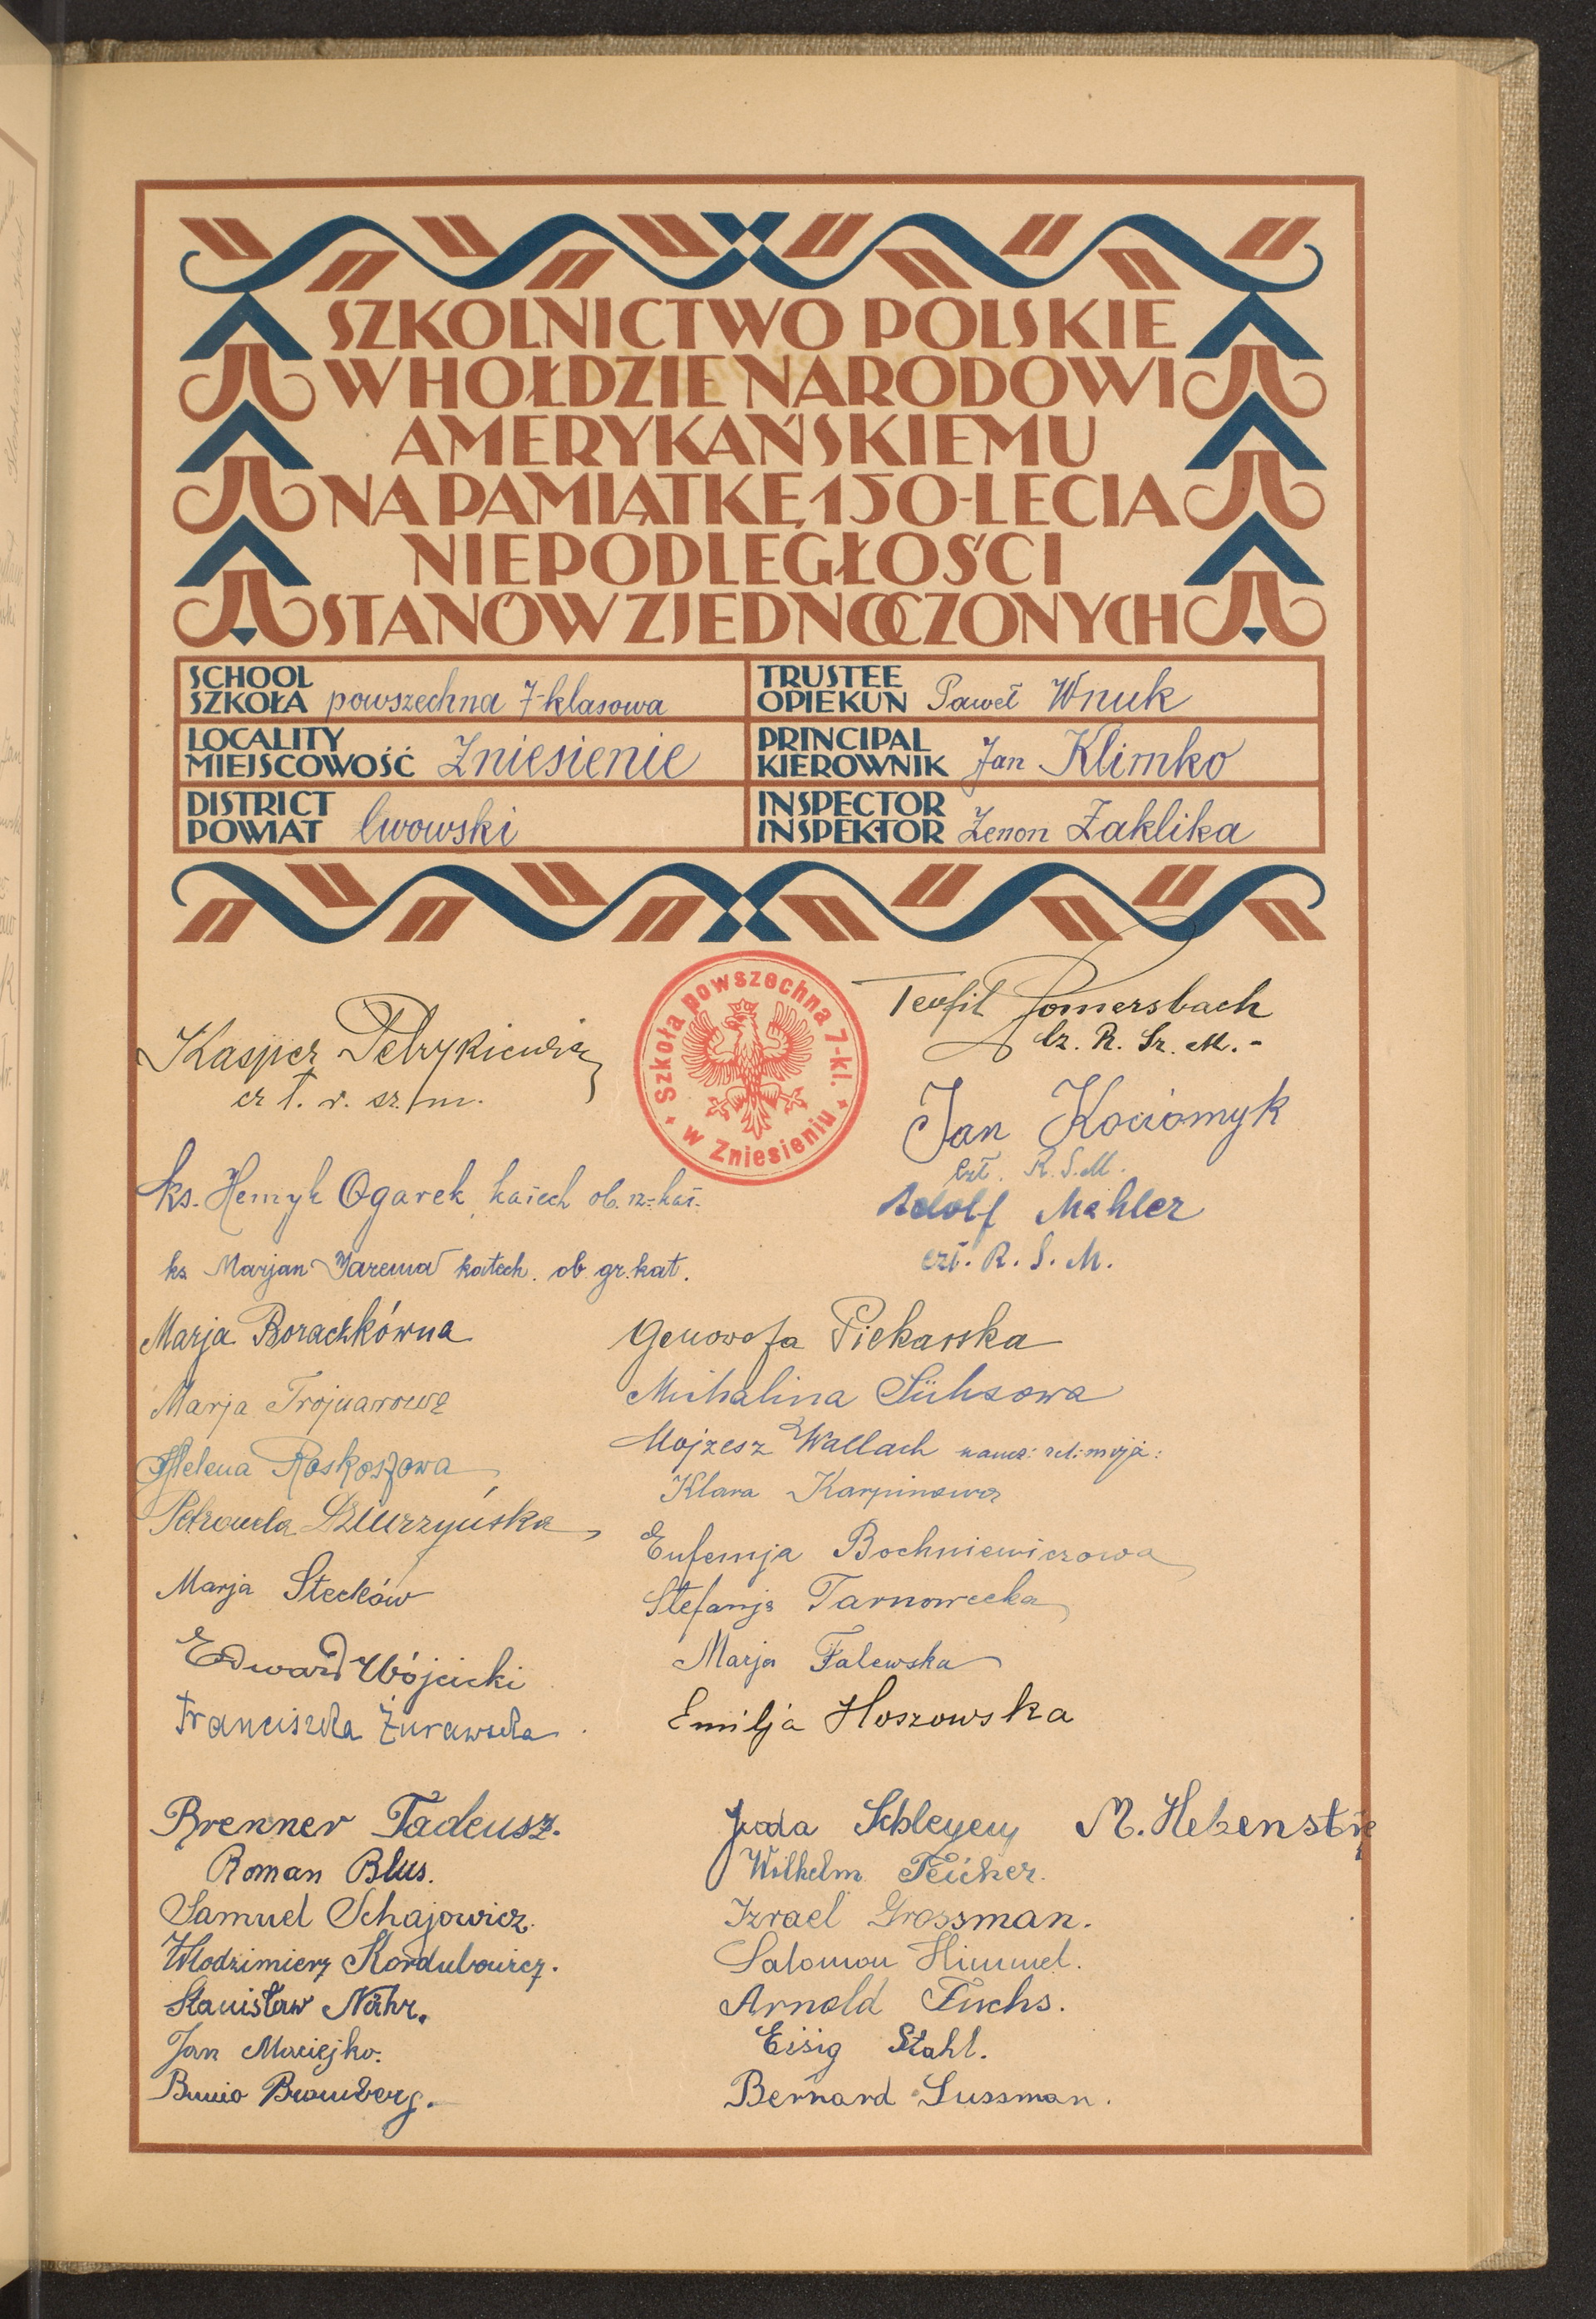 SZKOLNICTWO POLSKIE
W HOŁDZIE NARODOWI
AMERYKAŃSKIEMU
NA PAMIĄTKĘ 150-LECIA
NIEPODLEGŁOŚCI
STANÓW ZJEDNOCZONYCH
SCHOOL
SZKOŁA powszechna 7-klasowa
TRUSTEE
OPIEKUN Paweł Wnuk
LOCALITY
MIEJSCOWOŚĆ Zniesienie
PRINCIPAL
KIEROWNIK Jan Klimko
DISTRICT
POWIAT lwowski
INSPECTOR
INSPEKTOR Zenon Żaklika
Szkoła powszechna 7-kl.
w Zniesieniu
Teofil Pomersbach
cz. R. Sz. M.-
Kasper Petrykiewicz
czł. r. sz. m.
Jan Kociomyk
czł. R. S. M.
ks. Henryk Ogarek, katech ob. rz-kat.
Adolf Mahler
czł. R. S. M.
ks Marjan Jarema katech. ob gr. kat.
MarjaBoraczkówna
Genowefa Piekarska
Marja Trojnarowa
Michalina Sühsowa
Helena Roskoszowa
Mojzesz Wallach naucz: rel: mojż:
Klara Karpinowa
Petronela Dziurzyńska
Eufemja Bochniewiczowa
Marja Stećków
Stefanja Tarnowecka
Edward Wójcicki
Marja Falewska
Franciszka Żurawska
Emilja Hoszowska
Brenner Tadeusz.
Juda Schleyen M. Hebenstre
Roman Blus.
Wilhelm Teicher.
Samuel Schajowicz.
Izrael Grossman.
Włodzimierz Kordubowicz.
Salomon Himmel.
Stanisław Nähr.
Arnold Fuchs.
Jan Maciejko.
Eisig Stahl.
Bunio Bromberg.
Bernard Sussman.